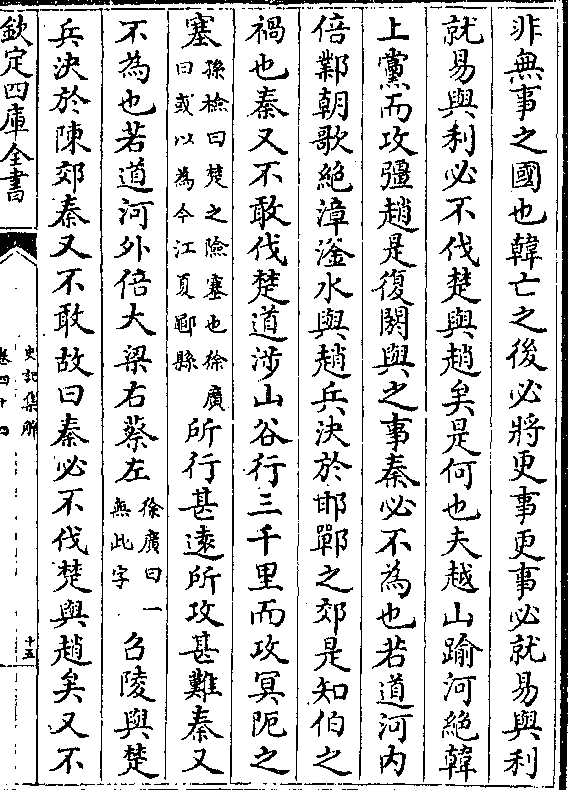 非無事之國也韓亡之後必將更事更事必就易與利
就易與利必不伐楚與趙矣是何也夫越山踰河絶韓
上黨而攻彊趙是復閼與之事秦必不為也若道河内
倍鄴朝歌絶漳滏水與趙兵決於邯鄲之郊是知伯之
禍也秦又不敢伐楚道涉山谷行三千里而攻冥阨之
塞孫檢曰楚之險塞也徐廣曰或以為今江夏鄳縣所行甚遠所攻甚難秦又
不為也若道河外倍大梁右蔡左徐廣曰一無此字召陵與楚
兵決於陳郊秦又不敢故曰秦必不伐楚與趙矣又不
欽定四庫全書
史記集解
卷四十四
十五